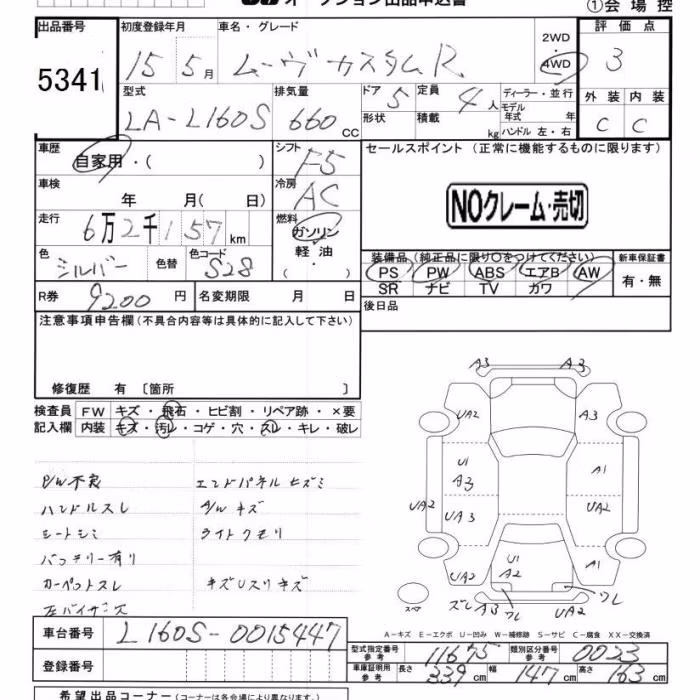 ①会場控
出品番号 初度登録年月 車名・グレード 評価点
5341 15年5月 ムーヴカスタムR 2WD・4WD 3
型式 排気量 ドア 5 定員 4人 ディーラー・並行 外装 内装
LA-L160S 660cc 形状 積載 kg モデル年式 年 ハンドル 左・右 C C
車歴 自家用・( ) シフト F5 セールスポイント (正常に機能するものに限ります)
車検 年 月( 日) 冷房 AC
NOクレーム・売切
走行 6万2千157km 燃料 ガソリン・軽油・( )
色 シルバー 色替 色コード S28
装備品(純正品に限り○をつけてください) 新車保証書
PS PW ABS エアB AW 有・無
SR ナビ TV カワ
R券 9200円 名変期限 月 日 後日品
注意事項申告欄(不具合内容等は具体的に記入して下さい)
修復歴 有 〔箇所 〕
検査員 FW キズ・飛石・ヒビ割・リペア跡・×要
記入欄 内装 キズ・汚レ・コゲ・穴・スレ・キレ・破レ
A3 A3
UA2 A3
U1 A3 A1
UA2 UA3 UA2
U1 A2
UA2 A1
スペア ズレ A3 ワレ UA2 ワレ
P/W不良 エンドパネルヒズミ
ハンドルスレ A/Wキズ
シートシミ ライトクモリ
バッテリー有り
カーペットスレ キズUスリキズ
左バイザーズ
A-キズ E-エクボ U-凹み W-補修跡 S-サビ C-腐食 XX-交換済
車台番号 L160S-0015447
型式指定番号 参考 11675 類別区分番号 参考 0023
登録番号
車庫証明用 参考 長さ 339cm 幅 147cm 高さ 163cm
希望出品コーナー (コーナーは各会場により異なります。)